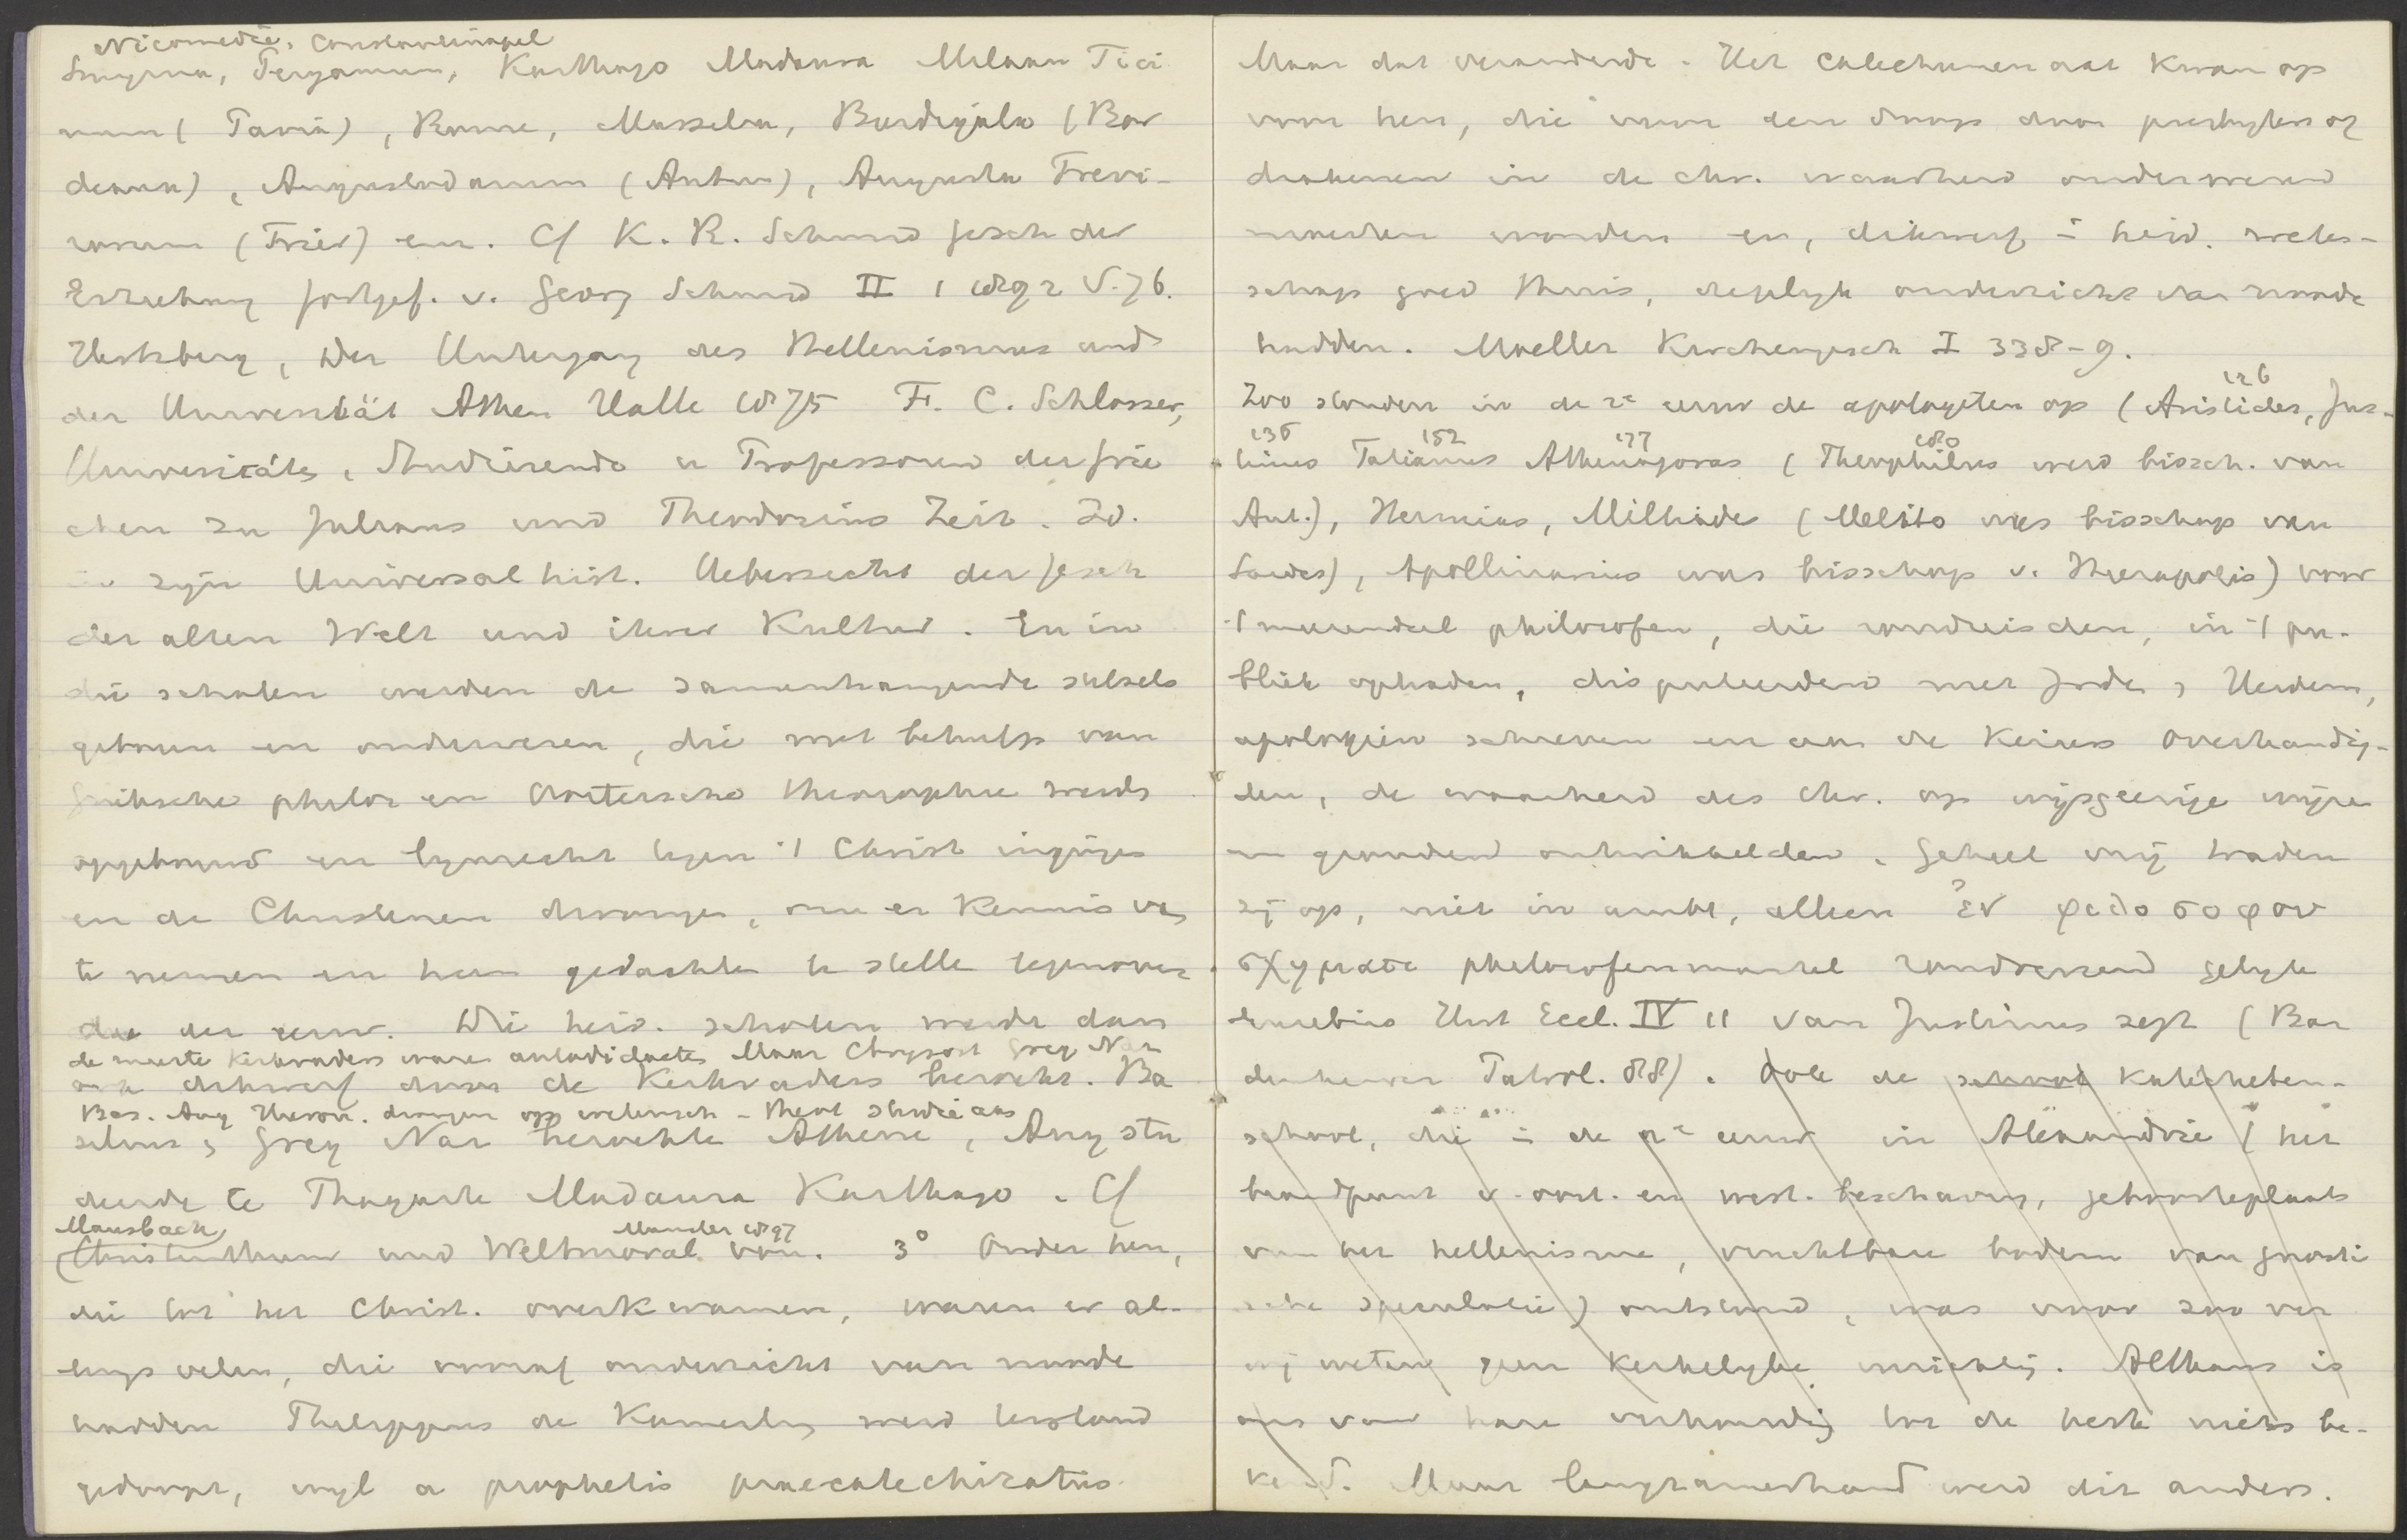 Nicomedië, Constantinopel
Smyrna, Pergamum, Karthago Madaura Milaan Tici
num (Pavia), Rome, Massilia, Burdigala (Bor
deaux), Augustodunum (Autun), Augusta Trevi-
rorum (Trier) enz. Cf K. A. Schmid Gesch der
Erziehung fortgef. v. Georg Schmid II 1 1892 S. 76.
Hertzberg, Der Untergang des Hellenismus und
der Universität Athen Halle 1875 F. C. Schlosser,
Universität, Studirende u Professoren der Grie
chen zu Julians und Theodosius Zeit. Id.
in zijn Universalhist. Uebersicht der Gesch
der alten Welt und ihrer Kultur. En in
die scholen werden de samenhangende stelsels
geboren en onderwezen, die met behulp van
Grieksche philos en Oostersche theosophie werds
opgebouwd en lynrecht tegen 't Christ ingingen
en de Christenen drongen, om er kennis van
te nemen en hun gedachten te stellen tegenover
die der eeuw. Die heid. scholen werden dan
de meeste kerkvaders waren autodidacten Maar Chrysost Greg Naz
ook dikwerf door de Kerkvaders bezocht. Ba
Bas. Aug Hieron. drongen op wetensch - theol studie aan
silius, Greg Naz bezochten Athene, Aug stu
deerde te Thagaste Madaura Karthago. Cf
Mausbach Munster 1897
(Christenthum und Weltmoral. 3° Onder hen,
die tot het Christ. overkwamen, waren er al-
lengs velen, die vooraf onderricht van noode
hadden Philippus de Kamerling werd terstond
gedoopt, wyl a prophetis praecatechizatus.
Maar dat veranderde. Het catechumenaat kwam op
voor hen, die voor den doop door presbyters of
diakenen in de chr. waarheid onderwezen
moesten worden en, dikwerf in heid. weten-
schap goed thuis, degelyk onderricht van noode
hadden. Moeller Kirchengesch I 338-9.
126
Zoo stonden in de 2e eeuw de apologeten op (Aristides, Jus-
136 152 177 180
tinus Tatianus Athenagoras (Theophilus werd bissch. van
Ant.), Hermias, Miltiades (Melito was bisschop van
Sardes), Apollinarius was bisschop v. Hierapolis) voor
't meerendeel philosofen, die rondreisden, in 't pu-
bliek optraden, disputeerden met Joden, Heidenen,
apologieën schreven en aan de Keizers overhandig-
den, de waarheid des Chr. op wijsgeerige wijze
en gronden ontwikkelden. Geheel vrij traden
zij op, niet in ambt, alleen ἐν φιλοσοφου
σχηματι philosofenmantel rondreizend gelyk
Eusebius Hist Eccl. IV 11 van Justinus zegt (Bar
denhewer Patrol. 88). Ook de school Katecheten-
school, die in de 2e eeuw in Alexandrië (het
brandpunt v. oost. en west. beschaving, geboorteplaats
van het hellenisme, vruchtbare bodem van gnosti
sche speculatie) ontstond, was voor zoo ver
wij weten geen kerkelyke inrichting. Althans is
ons van hare verhouding tot de kerk niets be-
kend. Maar langzamerhand werd dit anders.